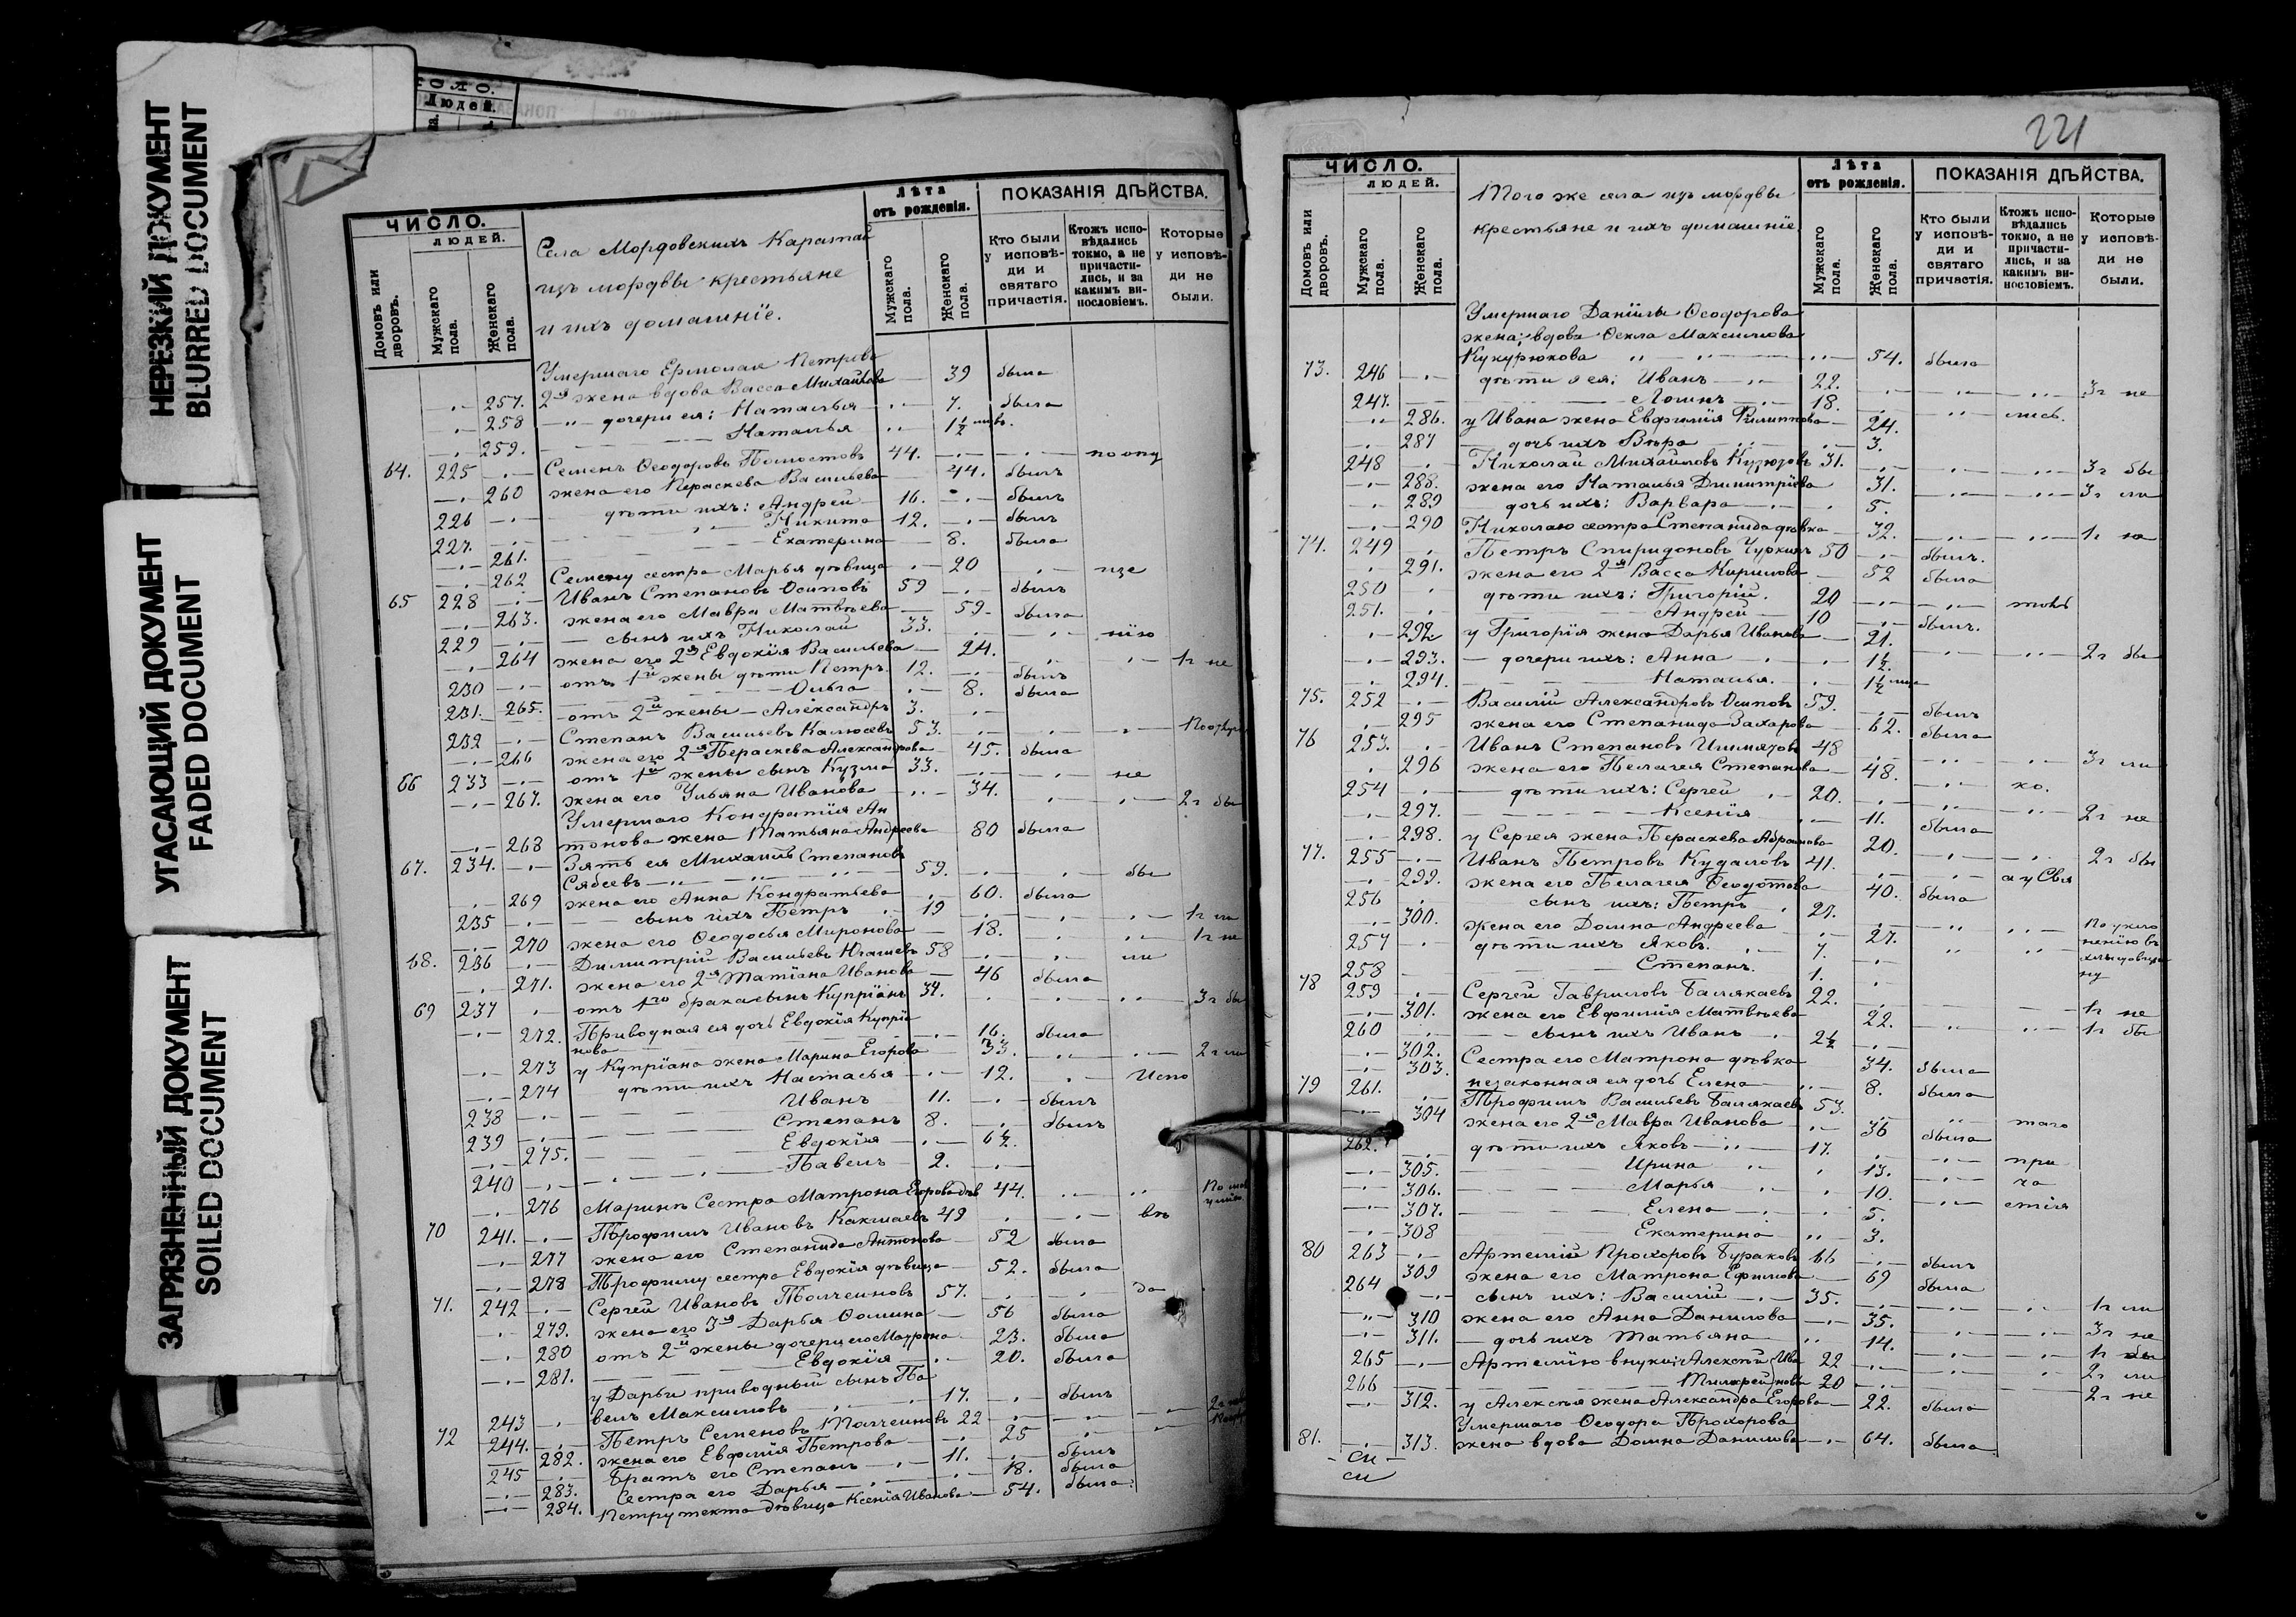 НЕРЕЗКИЙ ДОКУМЕНТ
BLURRED DOCUMENT
УГАСАЮЩИЙ ДОКУМЕНТ
FADED DOCUMENT
ЗАГРЯЗНЕННЫЙ ДОКУМЕНТ
SOILED DOCUMENT
Людей.
ЧИСЛО.
ЛЮДЕЙ.
Домовъ или дворовъ.
Мужскаго пола.
Женскаго пола.
Села Мордовскихъ Каратай
изъ мордвы крестьяне
и ихъ домашніе.
Лѣта
отъ рожденія.
Мужскаго пола.
Женскаго пола.
ПОКАЗАНІЯ ДѢЙСТВА.
Кто были у исповѣди и святаго причастія.
Ктожъ исповѣдались токмо, а не причастились, и за какимъ винословіемъ.
Которые у исповѣди не были.
Умершаго Ермолая Петрова
257. 2я жена вдова Васса Михайлова 39 была
258 дочери ея: Наталья 7. была
259. Наталья 1½
64. 225 Семенъ Ѳеодоровъ 44.
260 жена его Пераскева Васильева 44. былъ
226 дѣти ихъ: Андрей 16. былъ
227. Никита 12. былъ
261. Екатерина 8. была
262 Семену сестра Марья дѣвица 20
65 228 Иванъ Степановъ Осиповъ 59 былъ
263. жена его Мавра Матвѣева 59. была
229 сынъ ихъ Николай 33.
264 жена его 2я Евдокія Васильева 24. 1г не
230 отъ 1й жены дѣти Петръ 12. былъ
265. Ольга 8. была
231. отъ 2й жены Александръ 3.
232 Степанъ Васильевъ 53.
266 жена его 2я Пераскева Александрова 45. была
66 233 отъ 1й жены сынъ Кузма 33. не
267. жена его Ульяна Иванова 34. 2г бы
Умершаго Кондратія Ан
268 тонова жена Татьяна Андреева 80 была
67. 234. Зять ея Михаилъ Степановъ
59. бы
269 жена его Анна Кондратьева 60. была
235 сынъ ихъ Петръ 19 1г ли
270 жена его Ѳеодосья Миронова 18. 1г не
68. 236 Димитрій Васильевъ Югашевъ 58 ли
271. жена его 2я Татіана Иванова 46 была
69 237 отъ 1го брака сынъ Купріанъ 34. 3г бы
272. Приводная ея дочь Евдокія Купріа
нова 16. была
273 у Купріана жена Марина Егорова 33. 2г ли
274 дѣти ихъ Настасья 12. Испо
238 Иванъ 11. былъ
239 Степанъ 8. былъ
275. Евдокія 6½.
240 Павелъ 2.
276 Маринѣ Сестра Матрона Егорова дѣв 44.
70 241. Трофимъ Ивановъ Какшаевъ 49 въ
277 жена его Степанида Антонова 52 была
278 Трофиму сестра Евдокія дѣвица 52. была
71. 242 Сергей Ивановъ Толченновъ 57. да
279. жена его 3я Дарья Ѳомина 56 была
280 отъ 2й жены дочери его Матрона 23. была
281. Евдокія 20. была
у Дарьи приводный сынъ Па
243 велъ Максимовъ 17. былъ
72 244. Петръ Семеновъ Толченновъ 22
282. жена его Евфимія Петрова 25
245 братъ его Степанъ 11. былъ
283. Сестра его Дарья 18. была
284. Петру тетка дѣвица Ксенія Иванова 54. была
221
ЧИСЛО.
ЛЮДЕЙ.
Домовъ или дворовъ.
Мужскаго пола.
Женскаго пола.
Того же села изъ мордвы
крестьяне и ихъ домашніе
Лѣта
отъ рожденія.
Мужскаго пола.
Женскаго пола.
ПОКАЗАНІЯ ДѢЙСТВА.
Кто были у исповѣди и святаго причастія.
Ктожъ исповѣдались токмо, а не причастились, и за какимъ винословіемъ.
Которые у исповѣди не были.
Умершаго Даніила Ѳеодорова
жена: вдова Ѳекла Максимова
Кукурюкова 54. была
73. 246 дѣти ея: Иванъ 22. 3г не
247. Логинъ 18.
286. у Ивана жена Евфимія Филиппова 24. лись.
287 дочь ихъ Вѣра 3.
248 Николай Михайловъ 31. 3г бы
288. жена его Наталья Димитріева 31. 3г ли
289 дочь ихъ: Варвара 5.
290 Николаю сестра Степанида дѣвка 32. 1г
74. 249 Петръ Спиридоновъ Чуркинъ 50 былъ.
291. жена его 2я Васса Кирилова 52 была
250 дѣти ихъ: Григорій. 20
251. Андрей 10 былъ.
292 у Григорія жена Дарья Иванова 21.
293. дочери ихъ: Анна 1½. 2г бы
294. Наталья. 1½
75. 252 Василій Александровъ Осиповъ 59. былъ
295 жена его Степанида Захарова 62. была
76 253. Иванъ Степановъ 48 3г ли
296 жена его Пелагея Степанова 48.
254 дѣти ихъ: Сергей 20. ко.
297. Ксенія 11. была 2г не
298. у Сергея жена Пераскева Абрамова 20.
77. 255 Иванъ Петровъ Кудаловъ 41. 2г бы
299. жена его Пелагея Ѳеодотова 40. была
256 сынъ ихъ: Петръ 21.
300. жена его Домна Андреева 21.
257 дѣти ихъ Яковъ. 7.
258 Степанъ. 1.
78 259 Сергей Гавриловъ Балякаевъ 22. 1г не
301. жена его Евфимія Матвѣева 22. 1г бы
260 сынъ ихъ Иванъ 2½
302. Сестра его Матрона дѣвка 34. была
303. незаконная ея дочь Елена 8. была
79 261. Трофимъ Васильевъ Балякаевъ 53. таго
304 жена его 2я Мавра Иванова 36 была
262. дѣти ихъ Яковъ 17. при
305. Ирина 13. ча
306. Марья 10. стія
307. Елена 5.
308 Екатерина 3.
80 263 Артемій Прохоровъ Бураковъ 66 былъ
309 жена его Матрона Ефимова 69 была
264 сынъ ихъ: Василій 35. 1г ли
310 жена его Анна Данилова 35. 3г не
311. дочь ихъ Татьяна 14.
265 Артемію внуки: Алексѣй Ива 22 2г ли
266 новы 20 2г не
312. у Алексѣя жена Александра Егорова 22. была
Умершаго Ѳеодора Прохорова
81. 313. жена вдова Домна Данилова 64. была